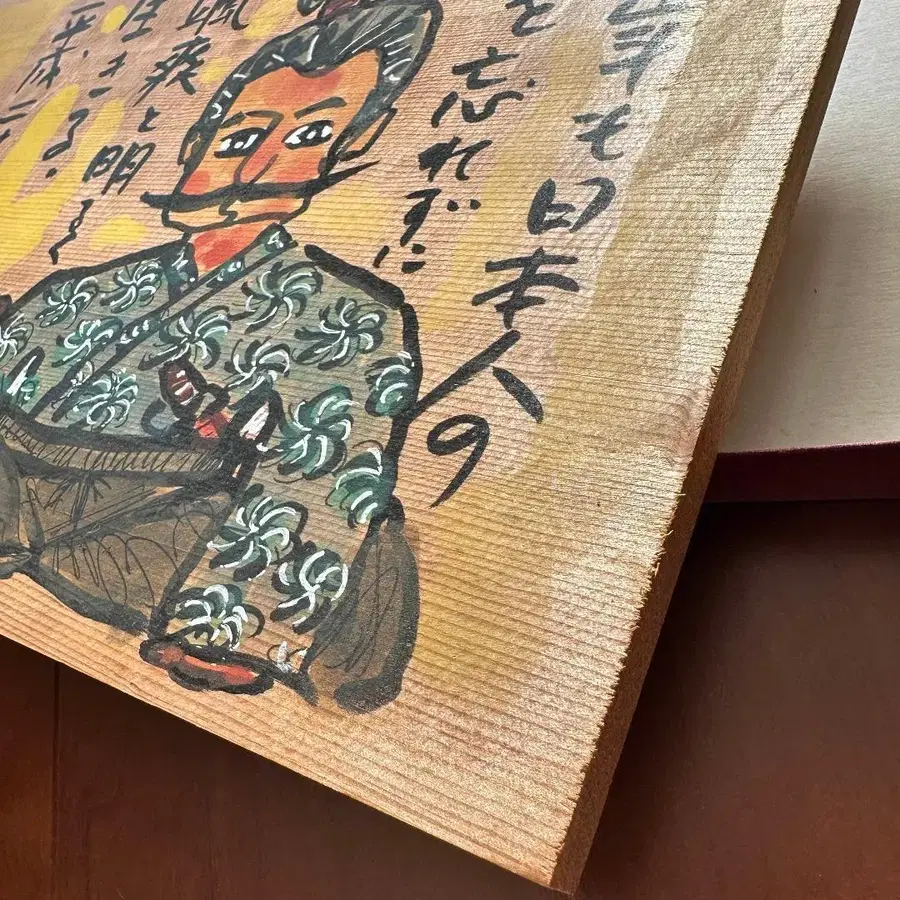 年も日本人の
を忘れずに
颯爽と明るく
生きる.
平成二